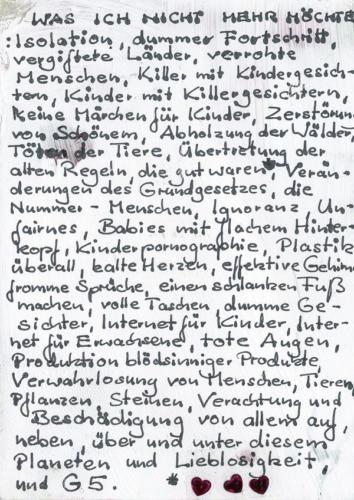 WAS ICH NICHT MEHR MÖCHTE
: Isolation, dummer Fortschritt,
vergiftete Länder, verrohte
Menschen, Killer mit Kindergesich-
tern, Kinder mit Killergesichtern,
keine Märchen für Kinder, Zerstörung
von Schönem, Abholzung der Wälder,
Töten der Tiere, Übertretung der
alten Regeln, die gut waren, Verän-
derungen des Grundgesetzes, die
Nummer-Menschen, Ignoranz, Un-
fairnes, Babies mit flachem Hinter-
kopf, Kinderpornographie, Plastik
überall, kalte Herzen, effektive
fromme Sprüche, einen schlanken Fuß
machen, volle Taschen, dumme Ge-
sichter, Internet für Kinder, Inter-
net für Erwachsene, tote Augen,
Produktion blödsinniger Produkte,
Verwahrlosung von Menschen, Tieren,
Pflanzen, Steinen, Verachtung und
Beschädigung von allem auf,
neben, über und unter diesem
Planeten und Lieblosigkeit,
und G5.